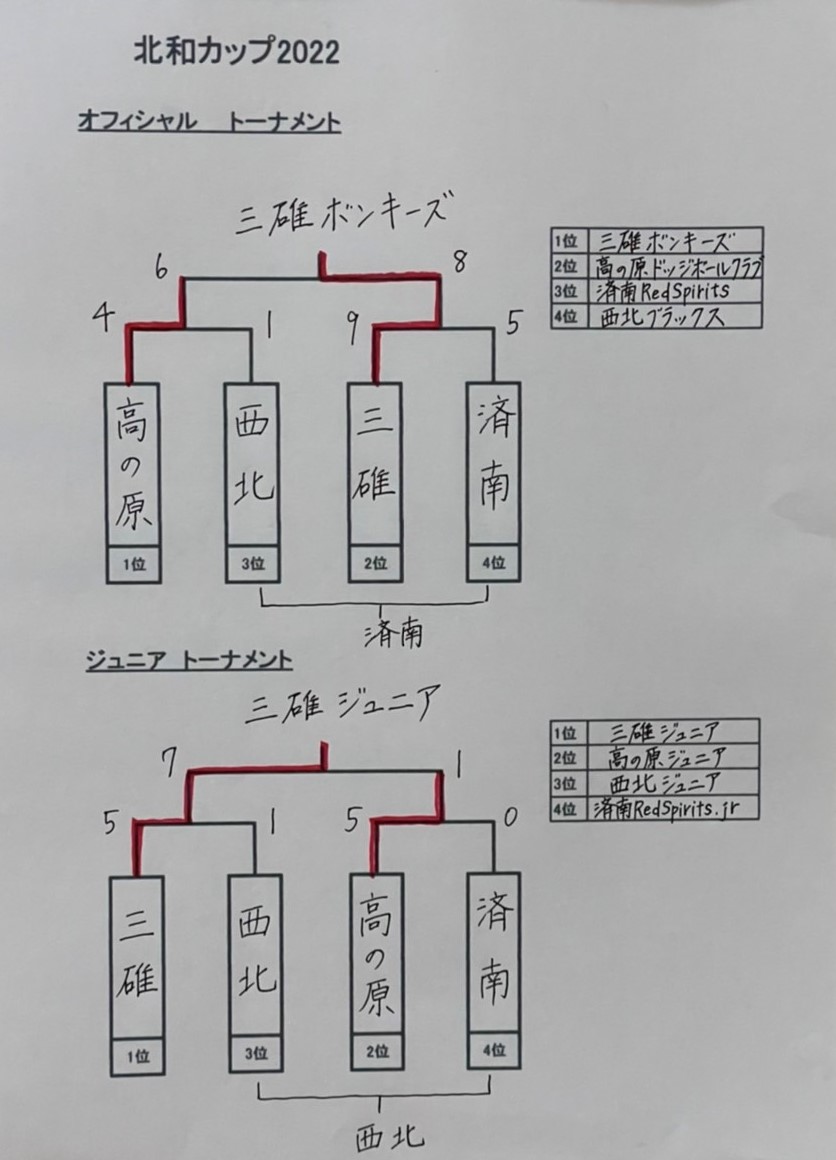 北和カップ2022
オフィシャル トーナメント
三碓ボンキーズ
6 8
4 1 9 5
高の原 西北 三碓 済南
1位 3位 2位 4位
済南
1位 三碓ボンキーズ
2位 高の原ドッジボールクラブ
3位 済南RedSpirits
4位 西北ブラックス
ジュニア トーナメント
三碓ジュニア
7 1
5 1 5 0
三碓 西北 高の原 済南
1位 3位 2位 4位
西北
1位 三碓ジュニア
2位 高の原ジュニア
3位 西北ジュニア
4位 済南RedSpirits.jr